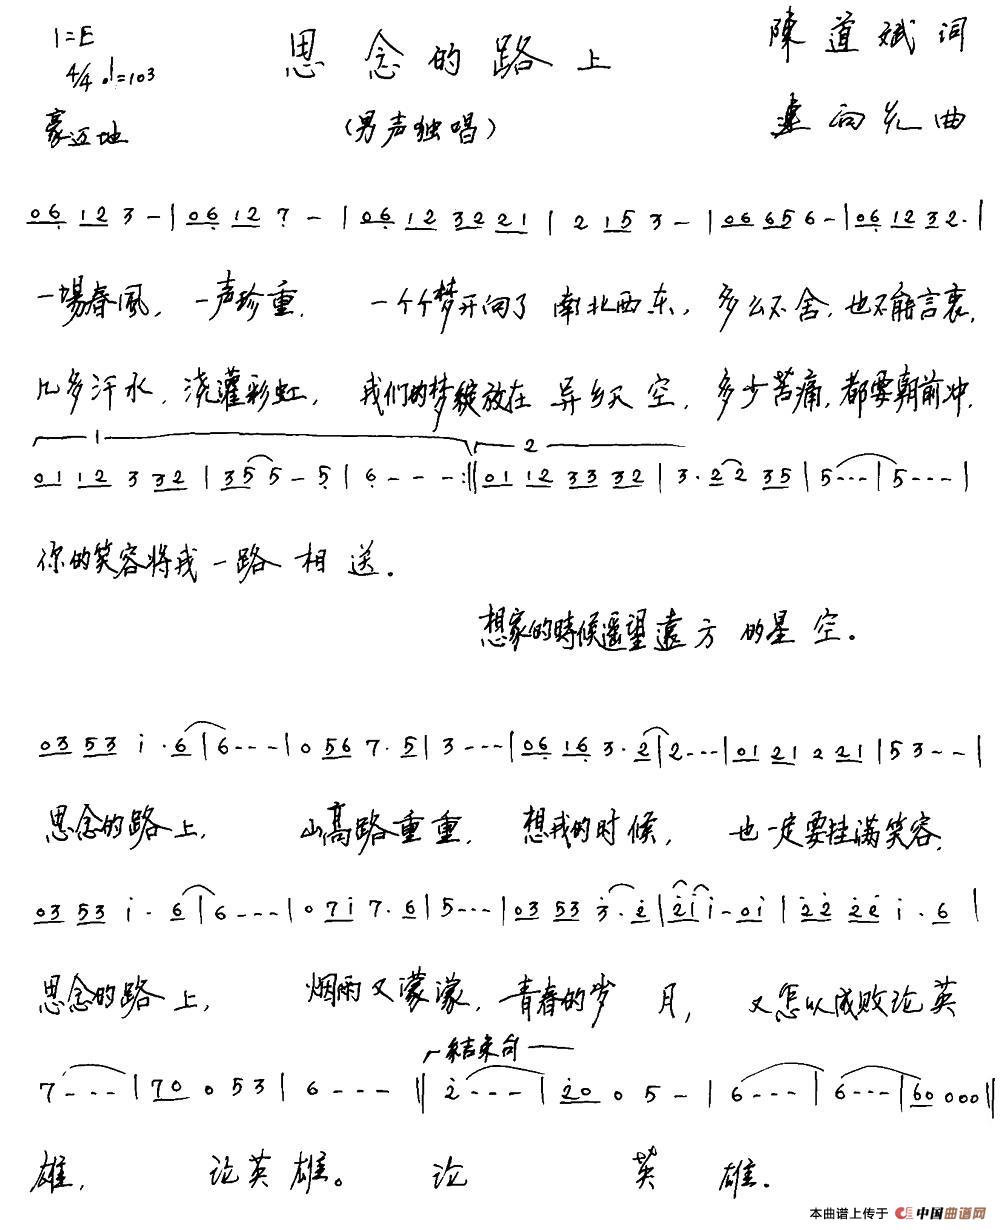 1=E 思念的路上 陳道斌词
4/4 ♩=103
豪迈地 (男声独唱) 曲
06 12 3 - | 06 12 7 - | 06 12 32 21 | 2 15 3 - | 06 656 6 - | 06 12 32. |
一場春風, 一声珍重. 一个个梦开向了南北西东, 多么不舍, 也不能言衷,
几多汗水, 浇灌彩虹, 我们的梦绽放在异乡天空, 多少苦痛, 都要朝前冲,
1 2
01 12 3 32 | 35 5 - 5 | 6 - - - :|| 01 12 33 32 | 3. 2 2 35 | 5 - - - | 5 - - - |
你的笑容将我一路相送.
想家的時候遥望遠方的星空.
03 53 i. 6 | 6 - - - | 0 56 7. 5 | 3 - - - | 06 16 3. 2 | 2 - - - | 01 21 2 21 | 5 3 - - |
思念的路上, 山高路重重, 想我的时候, 也一定要挂满笑容,
03 53 i. 6 | 6 - - - | 0 7i 7. 6 | 5 - - - | 03 53 3. 2 | 2i i - 0i | 22 22 i. 6 |
思念的路上, 烟雨又濛濛, 青春的岁月, 又怎以成败论英
结束句
7 - - - | 70 0 5 3 | 6 - - - || 2 - - - | 20 0 5 - | 6 - - - | 6 - - - | 60 0 0 0 ||
雄, 论英雄。论英雄.
本曲谱上传于 中国曲谱网